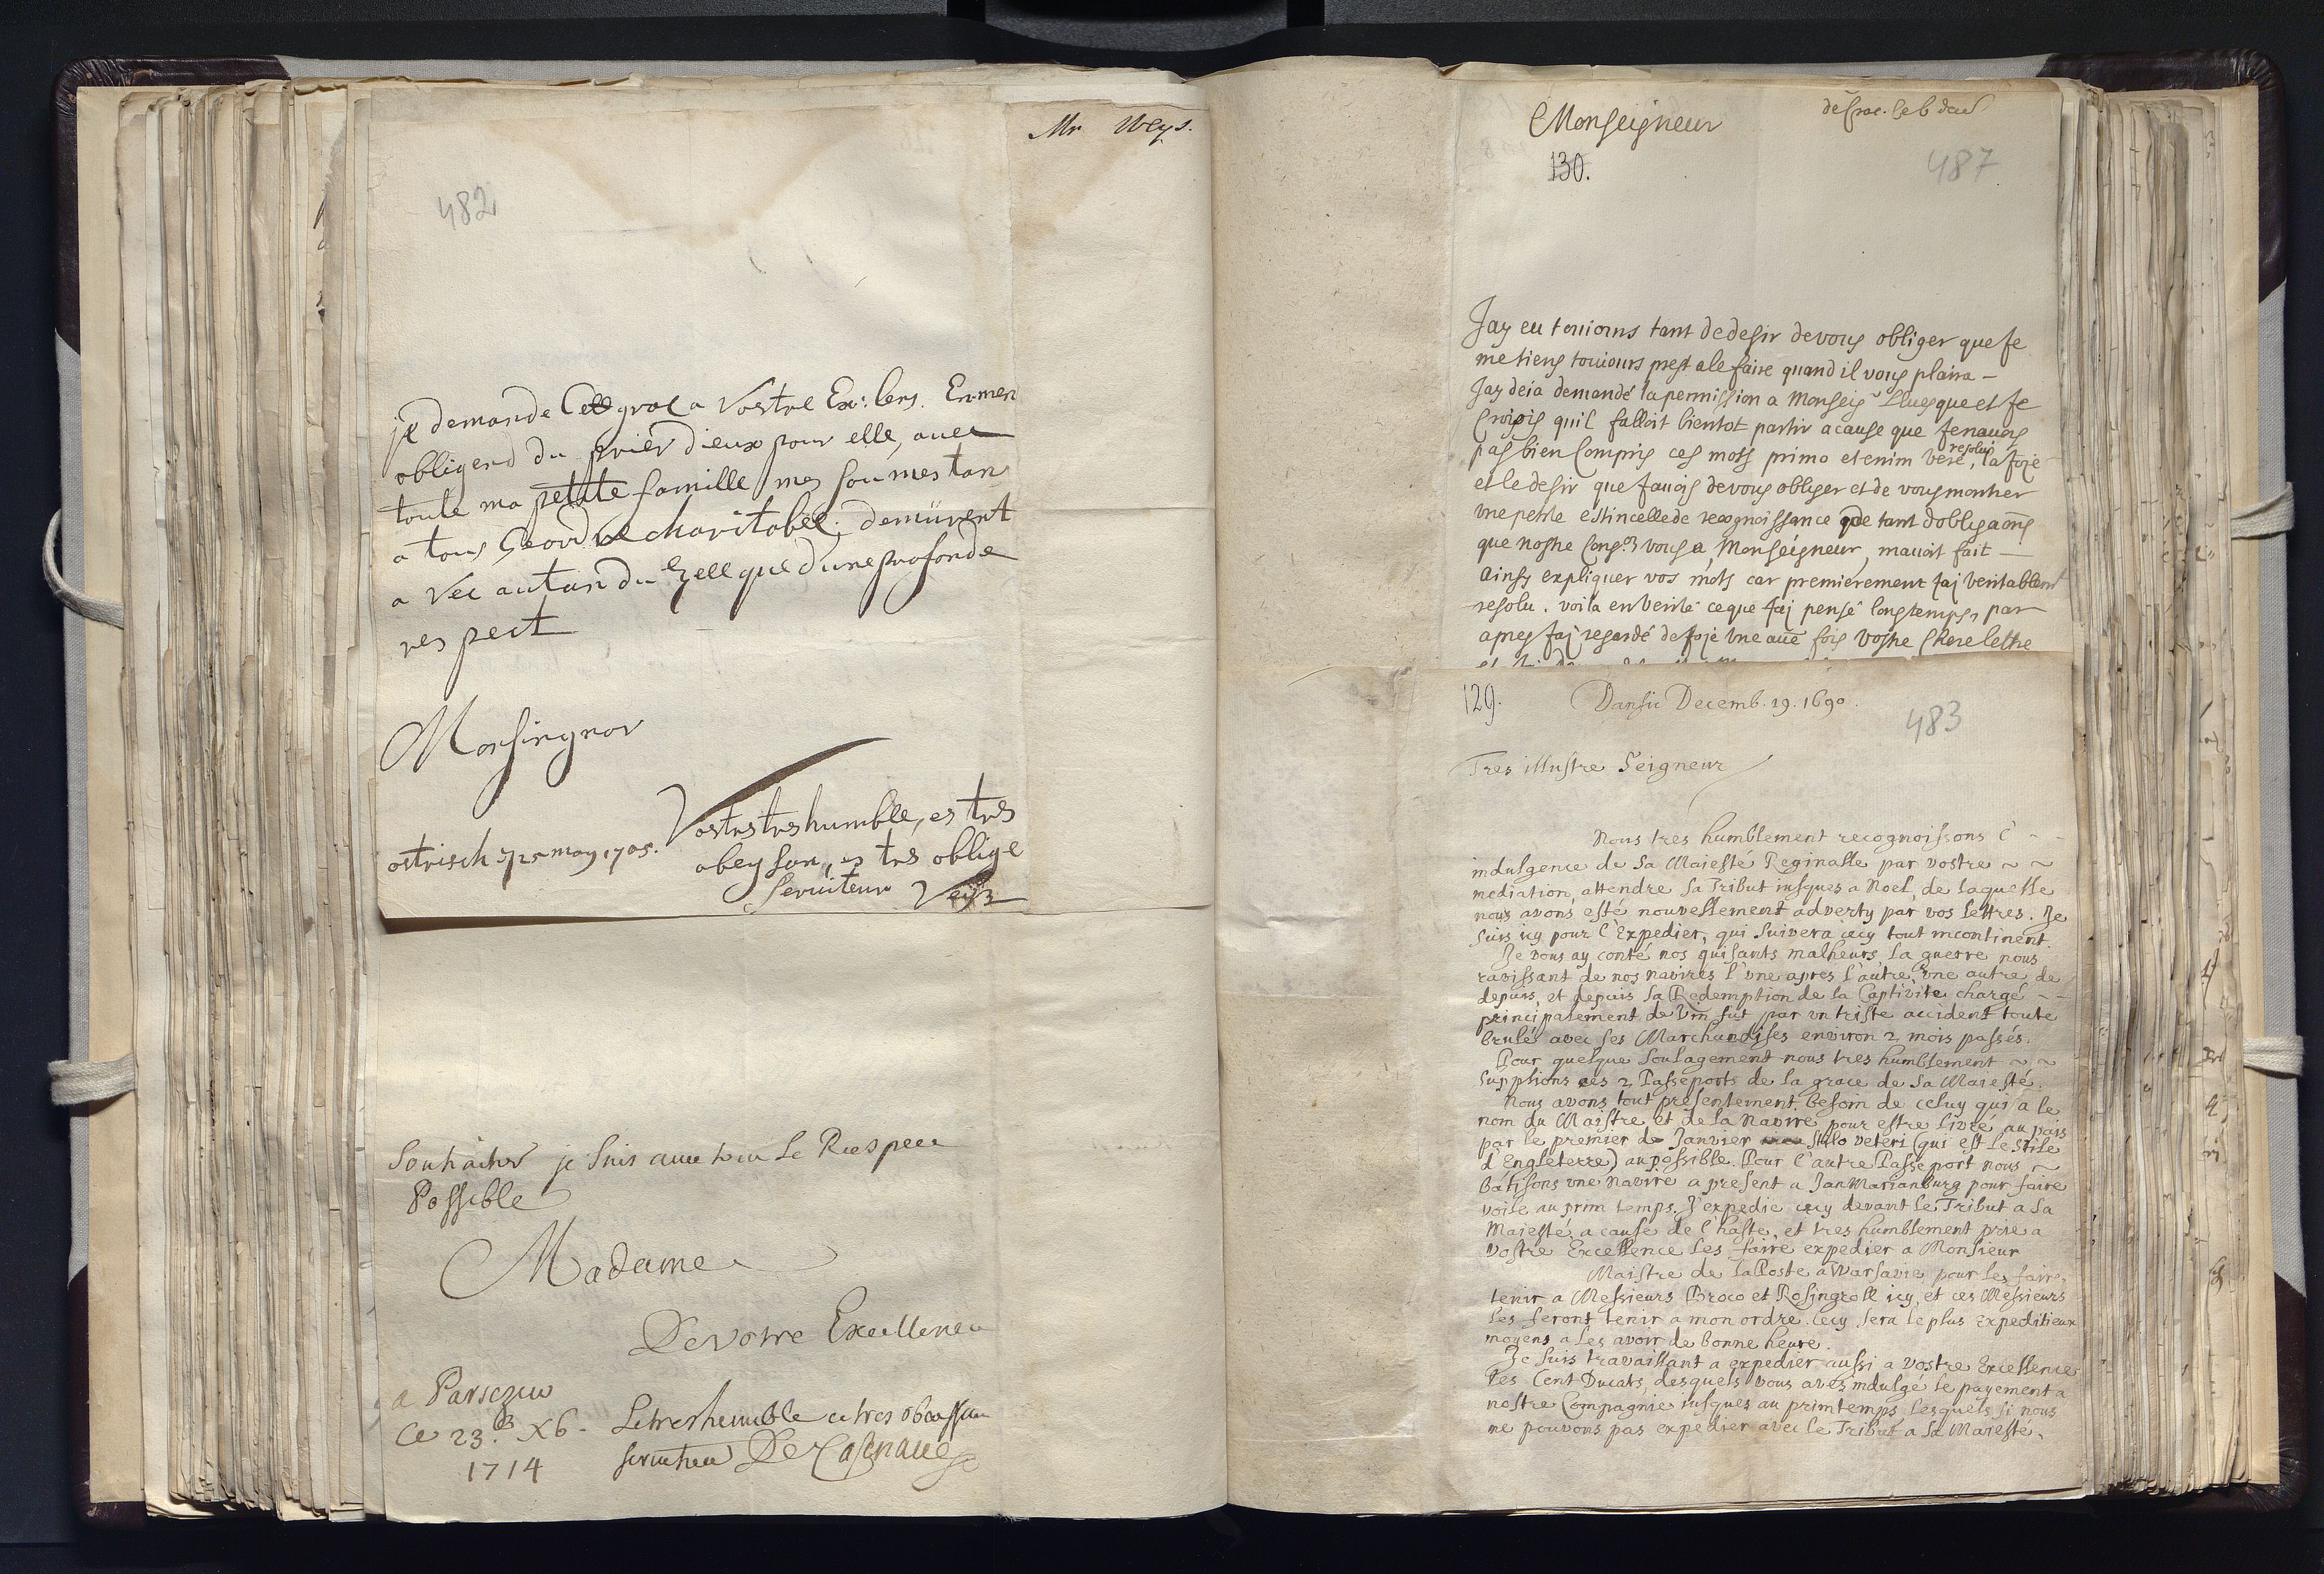 Mr Weys.
482
je demande Cette grace a Vostre Ex:lens. En men
obligend du prier dieux pour elle, avec
toute ma petitte famille, mes soumes tan
a tous Seord se charitable; demürent
a Vec autan du Zelle que d'une profonde
respect
Monsingnor
Vostes tres humble, es tres
obeysan, es tres oblige
seruiteur Veÿs
ostrisch 25 may 1705.
Souhaiter je suis avec tout Le Respect
Possible
Madame
De votre Excellence
a Parsczew
Ce 23.e Xb.
1714
Le tres humble et tres obeissan
serviteur De Casenave
Monseigneur
130.
487
Jay eu touiours tant de desir de vous obliger que Je
me tiens touiours prest a le faire quand il vous plaira –
Jay deia demandé la permission a Monseigr Luesque et Je
Croiois quil falloit bientot partir a cause que Jenauois
pas bien Compris ces mots primo etenim vere resolui, la Joie
et le desir que Jauois de vous obliger et de vous monstrer
vne petite estincelle de recognoissance de tant dobligaons
que nostre Congon vous a, Monseigneur, mauoit fait –
ainsy expliquer vos mots car premierement Jaj veritablemt
resolu. voila en verité ce que Jaj pensé longtemps, par
apres Jaj regardé de Joie vne autre fois vostre Chere lettre
129.
Dansic Decemb. 19. 1690.
483
Tres illustre Seigneur
Nous tres humblement recognoissons l' ~ ~
indulgence de Sa Maiesté Reginalle par vostre ~ ~
mediation, attendre Sa Tribut iusques a Noel, de laquelle
nous avons esté nouvellement adverty par vos lettres. Je
suis icy pour l'Expedier, qui suivera icy tout incontinent.
Je vous ay conté nos quisants malheurs, la guerre nous
ravissant de nos navires l'une apres l'autre. Une autre de
depuis, et depuis sa Redemption de la Captivite chargé ~ ~
principalement de Vin fut par un triste accident toute
brulés avec ses Marchandises environ 2 mois passés.
Pour quelque soulagement nous tres humblement ~ ~
supplions ces 2 Passeports de la grace de Sa Maiesté.
Nous avons tout presentement besoin de celuy qui a le
nom du Maistre et de la Navire pour estre livré au pais
par le premier de Janvier stilo veteri (qui est le stile
d'Engleterre) au possible. Pour l'autre Passeport nous ~
bâtisons une Navire a present a Jan Marianburg pour faire
voile au prim temps. J'expedie icy devant le Tribut a Sa
Maiesté, a cause de l'haste, et tres humblement prie a
vostre Excellence les faire expedier a Monsieur
Maistre de la Poste a Warsavie pour les faire
tenir a Messieurs Broco et Rosingroll icy, et ces Messieurs
les feront tenir a mon ordre. Cecy sera le plus Expeditieux
moyens a les avoir de bonne heure.
Je suis travaillant a expedier aussi a vostre Excellence
les Cent Ducats, desquels vous avés indulgé le payement a
nostre Compagnie iusques au printemps lesquels si nous
ne pouvons pas expedier avec le Tribut a Sa Maiesté,